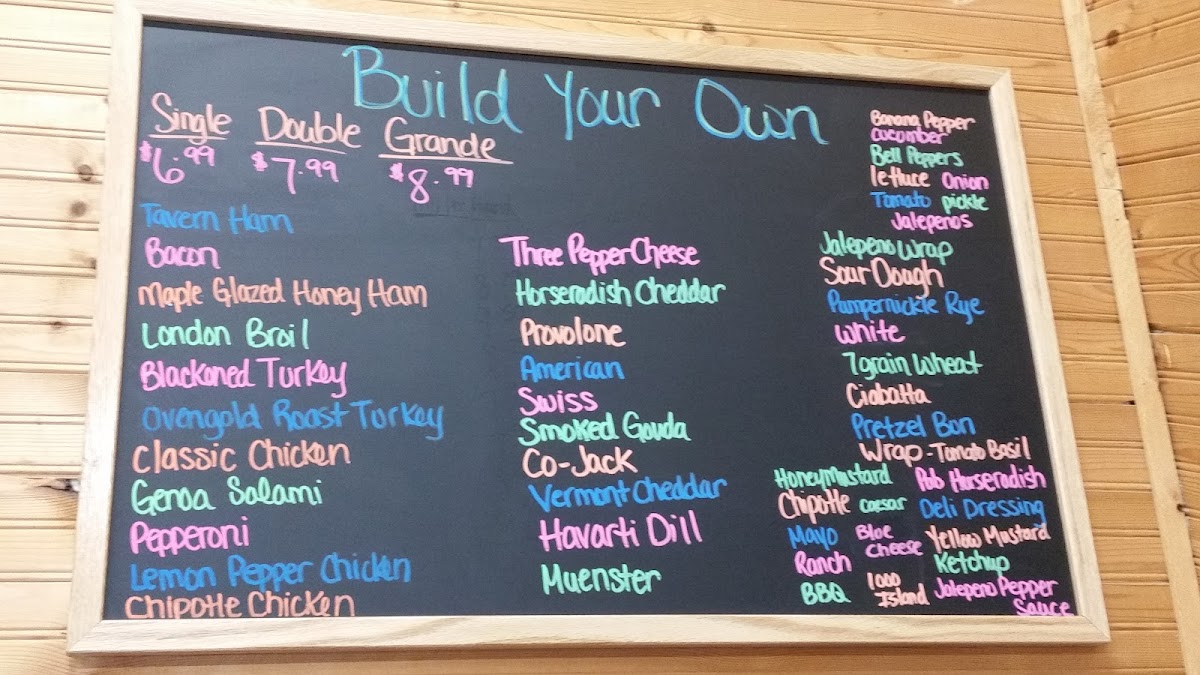 Build Your Own
Single Double Grande
$6.99 $7.99 $8.99
Tavern Ham
Bacon
Maple Glazed Honey Ham
London Broil
Blackened Turkey
Ovengold Roast Turkey
Classic Chicken
Genoa Salami
Pepperoni
Lemon Pepper Chicken
Chipotle Chicken
Three Pepper Cheese
Horseradish Cheddar
Provolone
American
Swiss
Smoked Gouda
Co-Jack
Vermont Cheddar
Havarti Dill
Muenster
Banana Pepper
cucumber
Bell Peppers
lettuce Onion
Tomato pickle
Jalepenos
Jalepeno Wrap
Sour Dough
Pumpernickle Rye
White
7 grain Wheat
Ciabatta
Pretzel Bun
Wrap - Tomato Basil
Honey Mustard Pub Horseradish
Chipotle caesar Deli Dressing
Mayo Blue Cheese Yellow Mustard
Ranch Ketchup
BBQ 1000 Island Jalepeno Pepper
Sauce